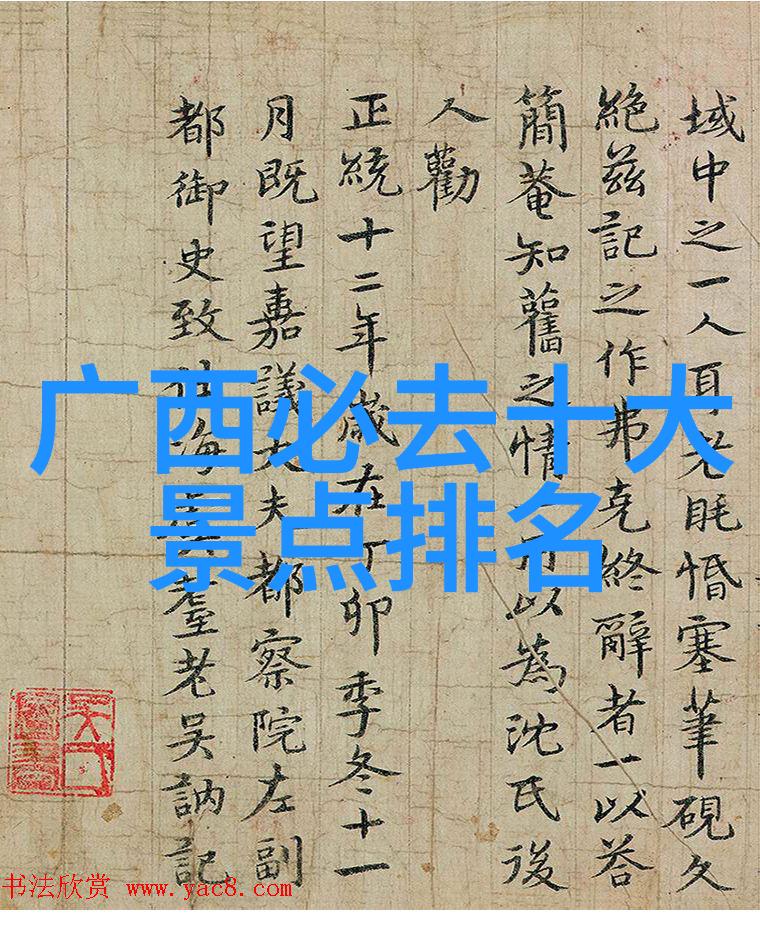 域中之一人耳老眊惛塞筆硯久
絶兹記之作弗克終辭者一以荅
簡菴知舊之情一用以為沈氏後
人勸
正統十二年歲在丁卯季冬十一
月既望嘉議大夫都察院左副
都御史致仕海虞耋老吳訥記
广西必去十大
景点排名
书法欣赏 www.yac8.com